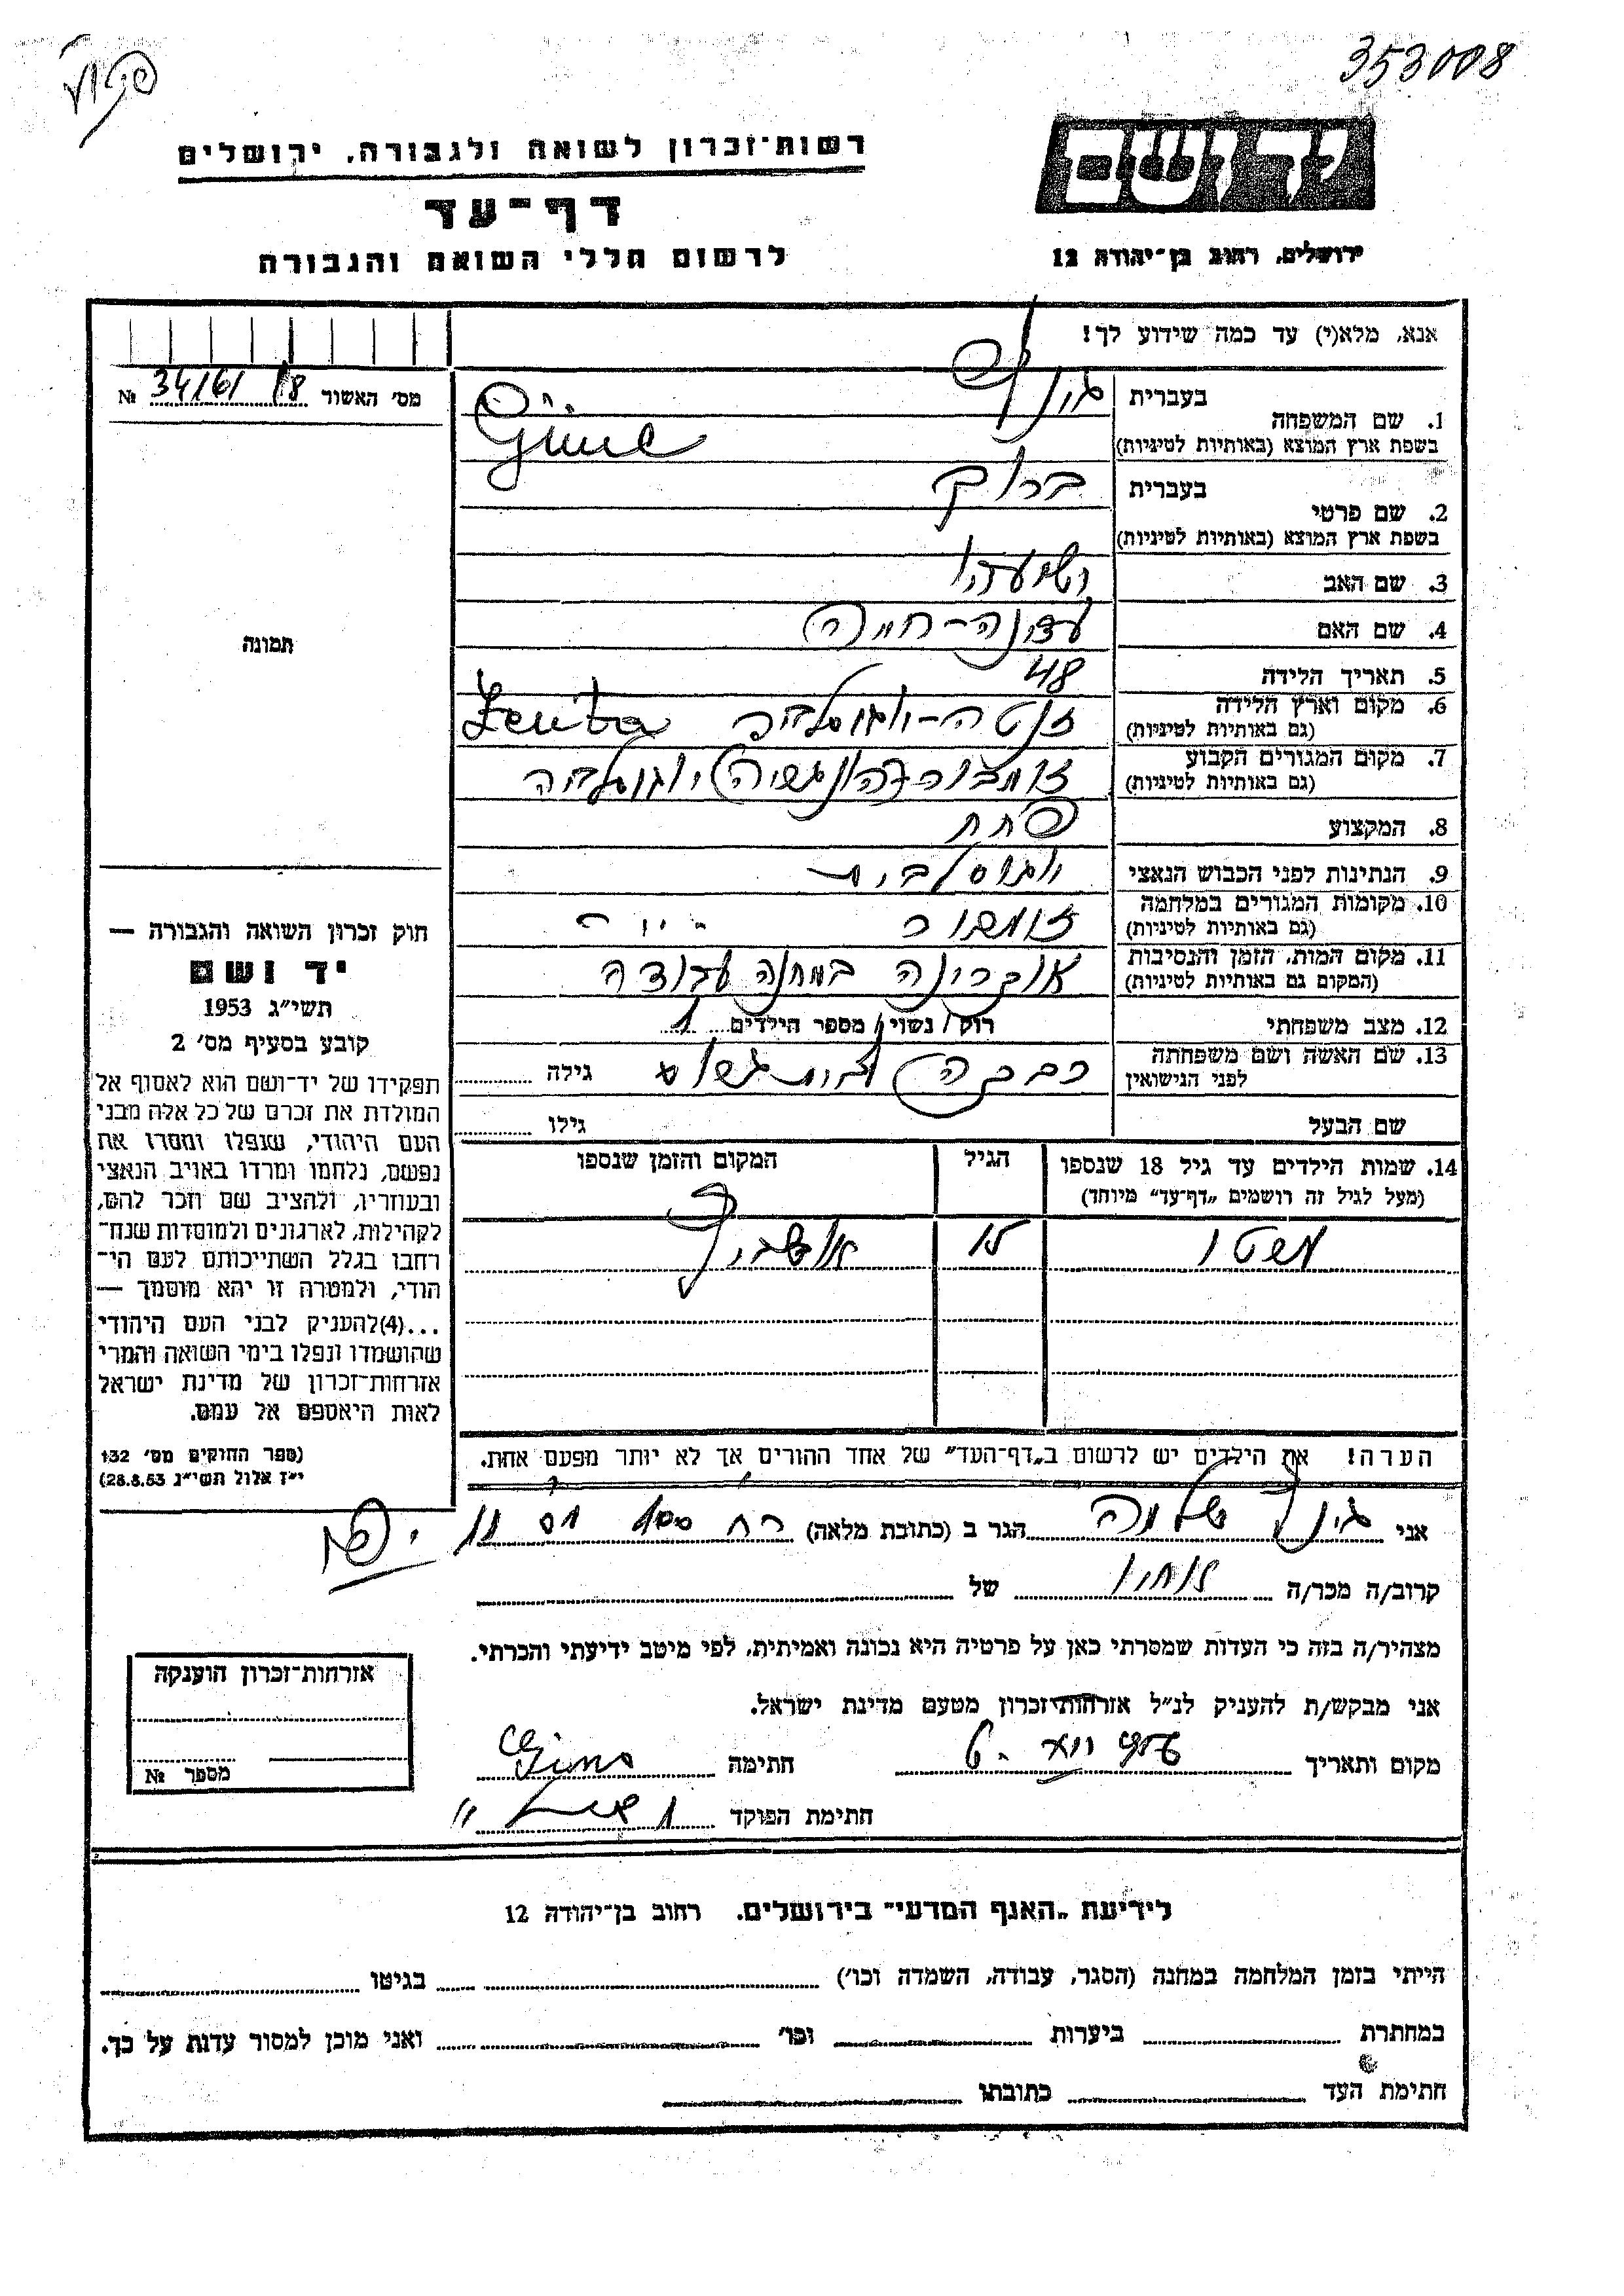 353008
רשות־זכרון לשואה ולגבורה, ירושלים
יד ושם
דף־עד
לרשום חללי השואה והגבורה
ירושלים, רחוב בן־יהודה 12
אנא, מלא(י) עד כמה שידוע לך!
מס׳ האשור 34161/18 №
בעברית
1. שם המשפחה
בשפת ארץ המוצא (באותיות לטיניות)
בעברית ברוך
2. שם פרטי
בשפת ארץ המוצא (באותיות לטיניות)
3. שם האב ישעיהו
4. שם האם עדינה-חיה
5. תאריך הלידה 48
6. מקום וארץ הלידה זנטה-יוגוסלביה Zenta
(גם באותיות לטיניות)
7. מקום המגורים הקבוע יוגוסלביה
(גם באותיות לטיניות)
8. המקצוע פחח
9. הנתינות לפני הכבוש הנאצי יוגוסלבית
10. מקומות המגורים במלחמה זומבור
(גם באותיות לטיניות)
11. מקום המות, הזמן והנסיבות אוקרינה במחנה עבודה
(המקום גם באותיות לטיניות)
12. מצב משפחתי רווק/ נשוי/ מספר הילדים 1
13. שם האשה ושם משפחתה רבקה גילה
לפני הנישואין
שם הבעל גילו
14. שמות הילדים עד גיל 18 שנספו הגיל המקום והזמן שנספו
(מעל לגיל זה רושמים „דף־עד” מיוחד)
הערה! את הילדים יש לרשום ב„דף־העד” של אחד ההורים אך לא יותר מפעם אחת.
תמונה
חוק זכרון השואה והגבורה —
יד ושם
תשי״ג 1953
קובע בסעיף מס׳ 2
תפקידו של יד־ושם הוא לאסוף אל
המולדת את זכרם של כל אלה מבני
העם היהודי, שנפלו ומסרו את
נפשם, נלחמו ומרדו באויב הנאצי
ובעוזריו, ולהציב שם וזכר להם,
לקהילות, לארגונים ולמוסדות שנח־
רחבו בגלל השתייכותם לעם הי־
הודי, ולמטרה זו יהא מוסמך —
...(4)להעניק לבני העם היהודי
שהושמדו ונפלו בימי השואה והמרי
אזרחות־זכרון של מדינת ישראל
לאות היאספם אל עמם.
(ספר החוקים מס׳ 132
י״ז אלול תשי״ג 28.8.53)
אני שלמה הגר ב (כתובת מלאה) יפו
קרוב/ה מכר/ה אחיו של
מצהיר/ה בזה כי העדות שמסרתי כאן על פרטיה היא נכונה ואמיתית, לפי מיטב ידיעתי והכרתי.
אני מבקש/ת להעניק לנ״ל אזרחות־זכרון מטעם מדינת ישראל.
מקום ותאריך חתימה
חתימת הפוקד
אזרחות־זכרון הוענקה
מספר №
לידיעת „האגף המדעי” בירושלים, רחוב בן־יהודה 12
הייתי בזמן המלחמה במחנה (הסגר, עבודה, השמדה וכו׳) בגיטו
במחתרת ביערות וכו׳ ואני מוכן למסור עדות על כך.
חתימת העד כתובתו